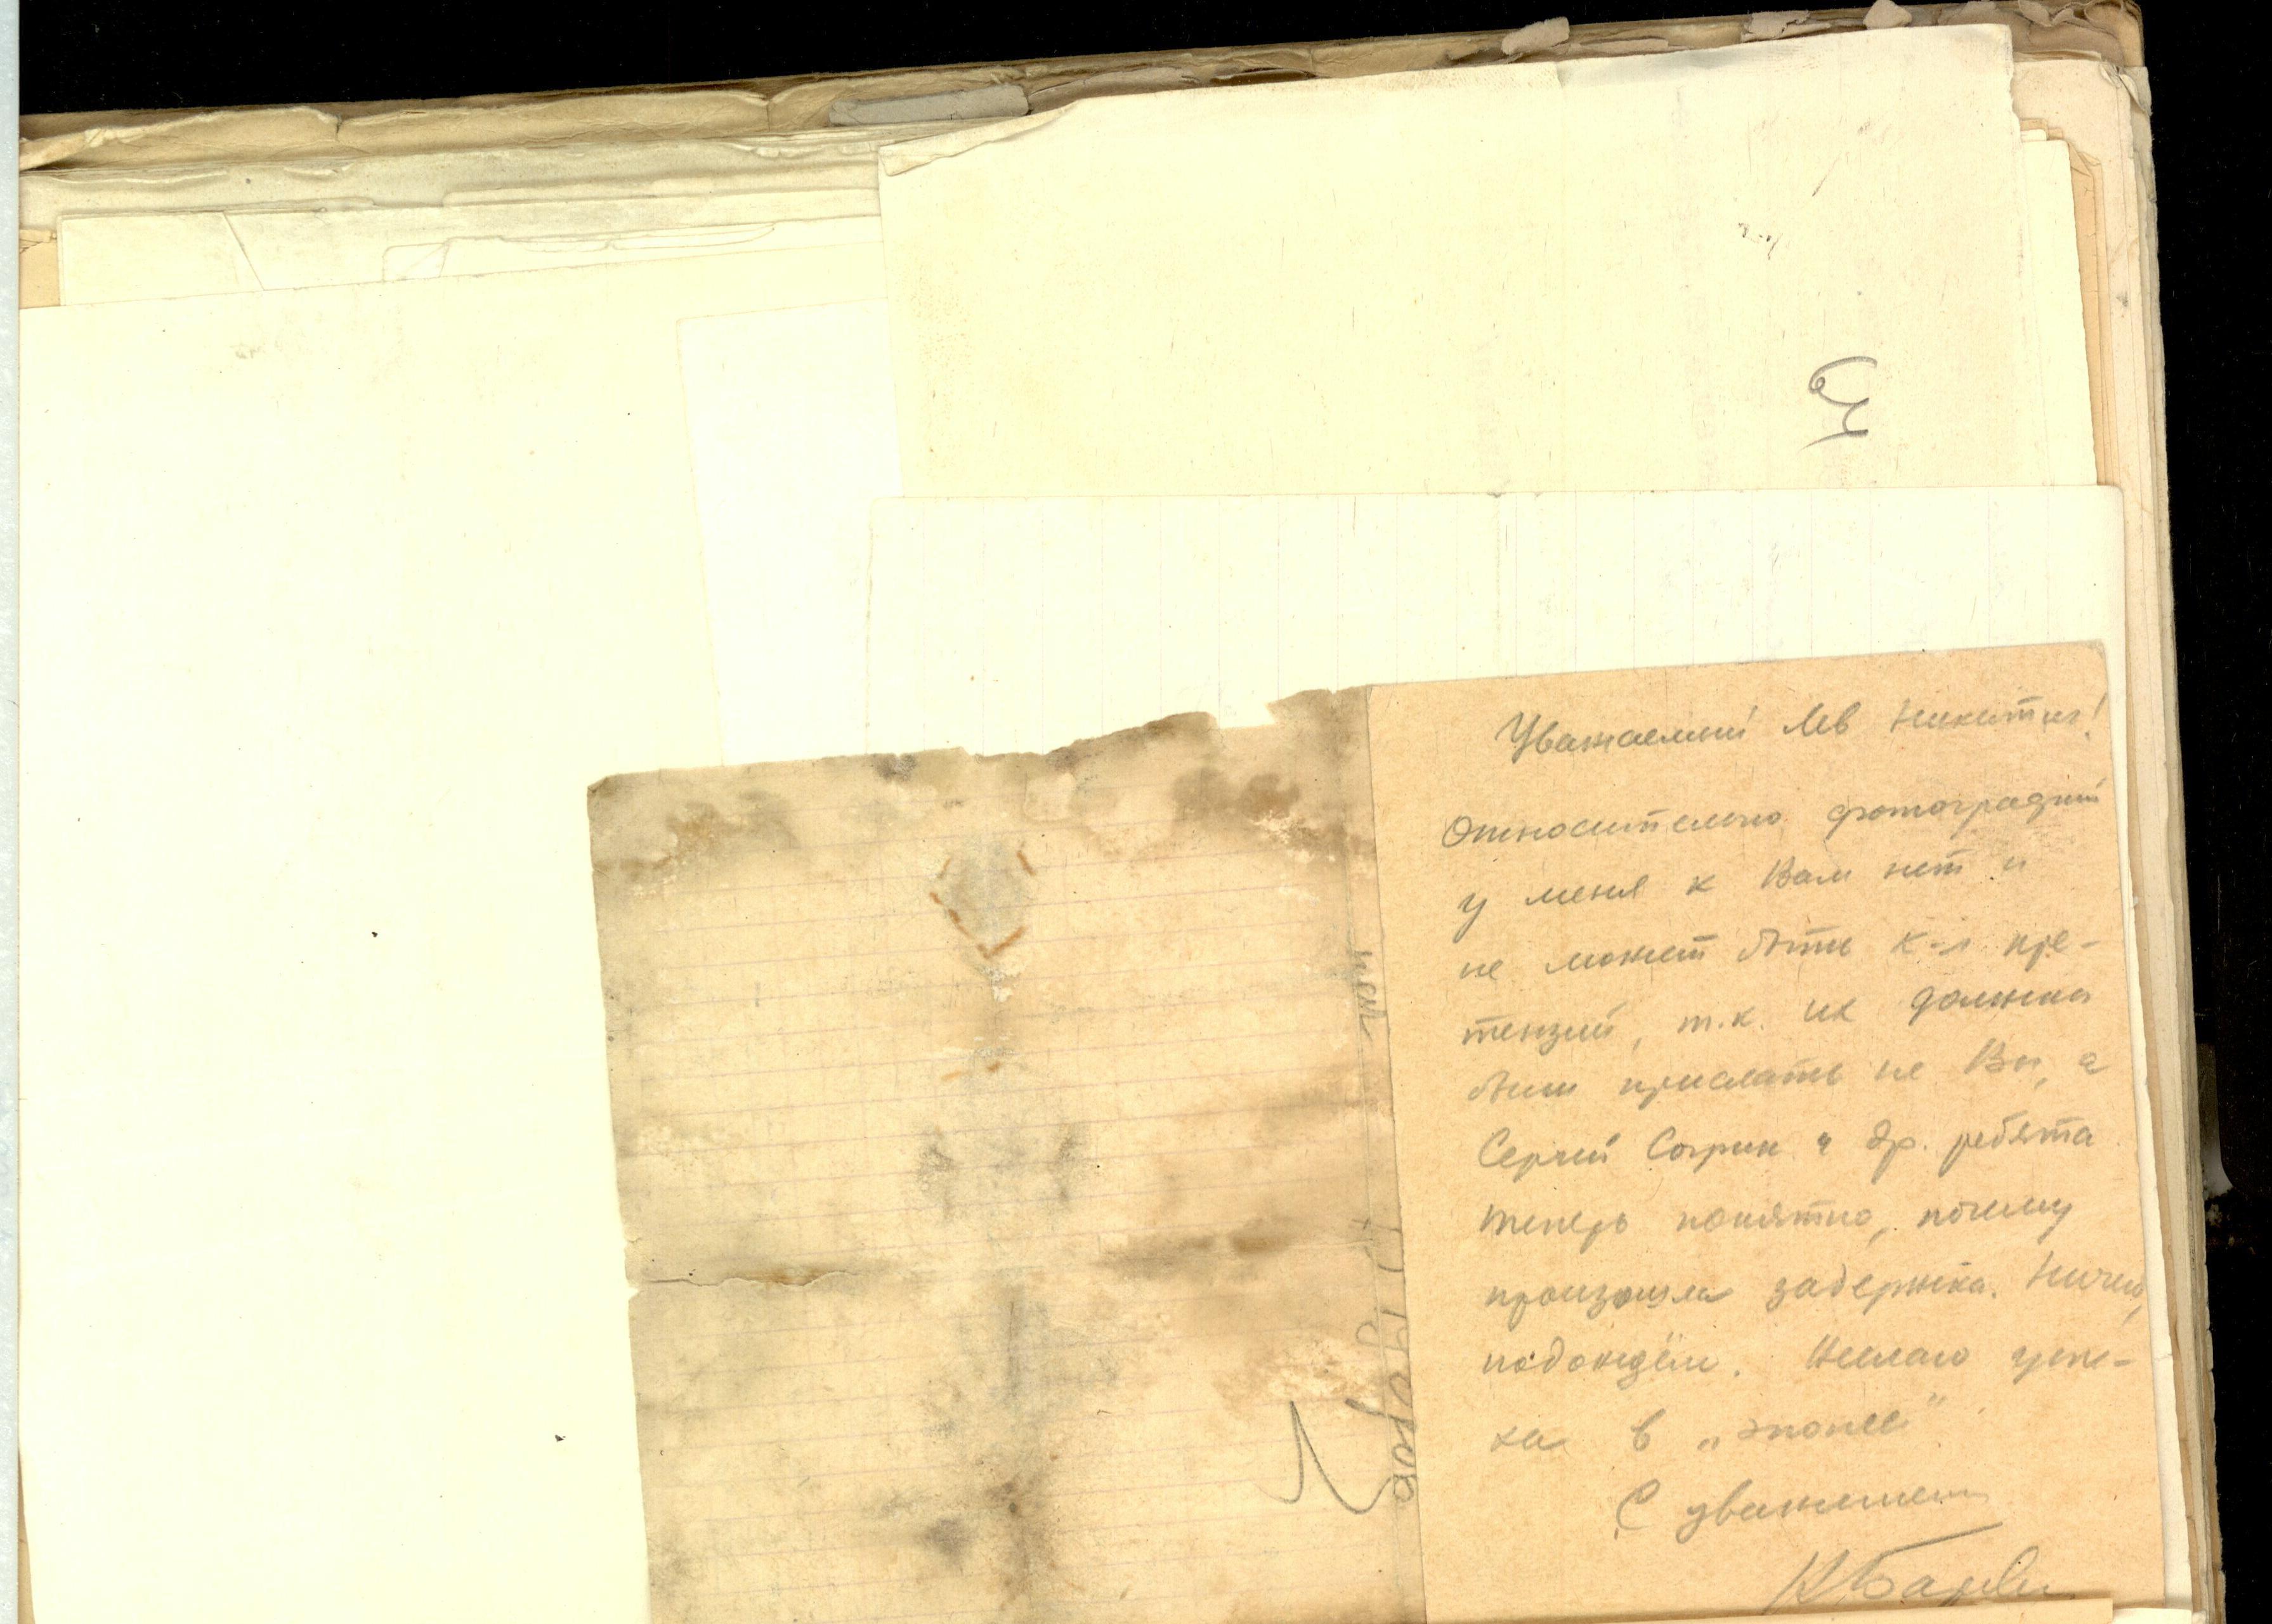 Уважаемый Лев Никитич!
Относительно фотографий
у меня к Вам нет и
не может быть к-л пре-
тензий, т.к. их должны
были прислать не Вы, а
Сергей Согрин и др. ребята
Теперь понятно, почему
произошла задержка. Ничего,
подождём. Желаю успе-
ха в
С уважением